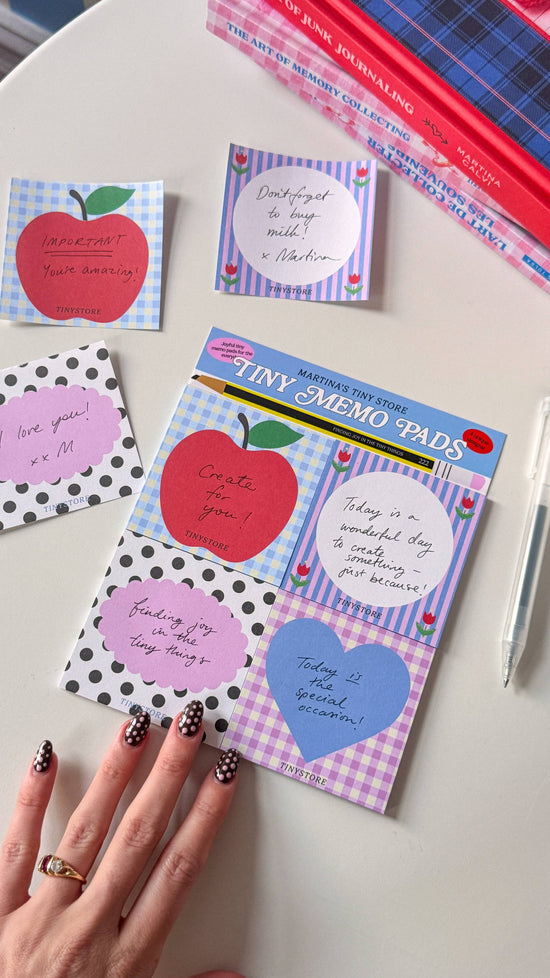 OF JUNK JOURNALING
MARTINA
CALVI
THE ART OF MEMORY COLLECTING
L'ART DE COLLECTER
LES SOUVENIRS
IMPORTANT
You're amazing!
TINYSTORE
Don't forget
to buy
milk!
x Martina
TINYSTORE
I love you!
xx M
TINYSTORE
Joyful tiny
memo pads for the
MARTINA'S TINY STORE
TINY MEMO PADS
FINDING JOY IN THE TINY THINGS
222
Create
for
you!
TINYSTORE
Today is a
wonderful day
to create
something –
just because!
TINYSTORE
finding joy
in the
tiny things
TINYSTORE
Today is
the
special
occasion!
TINYSTORE